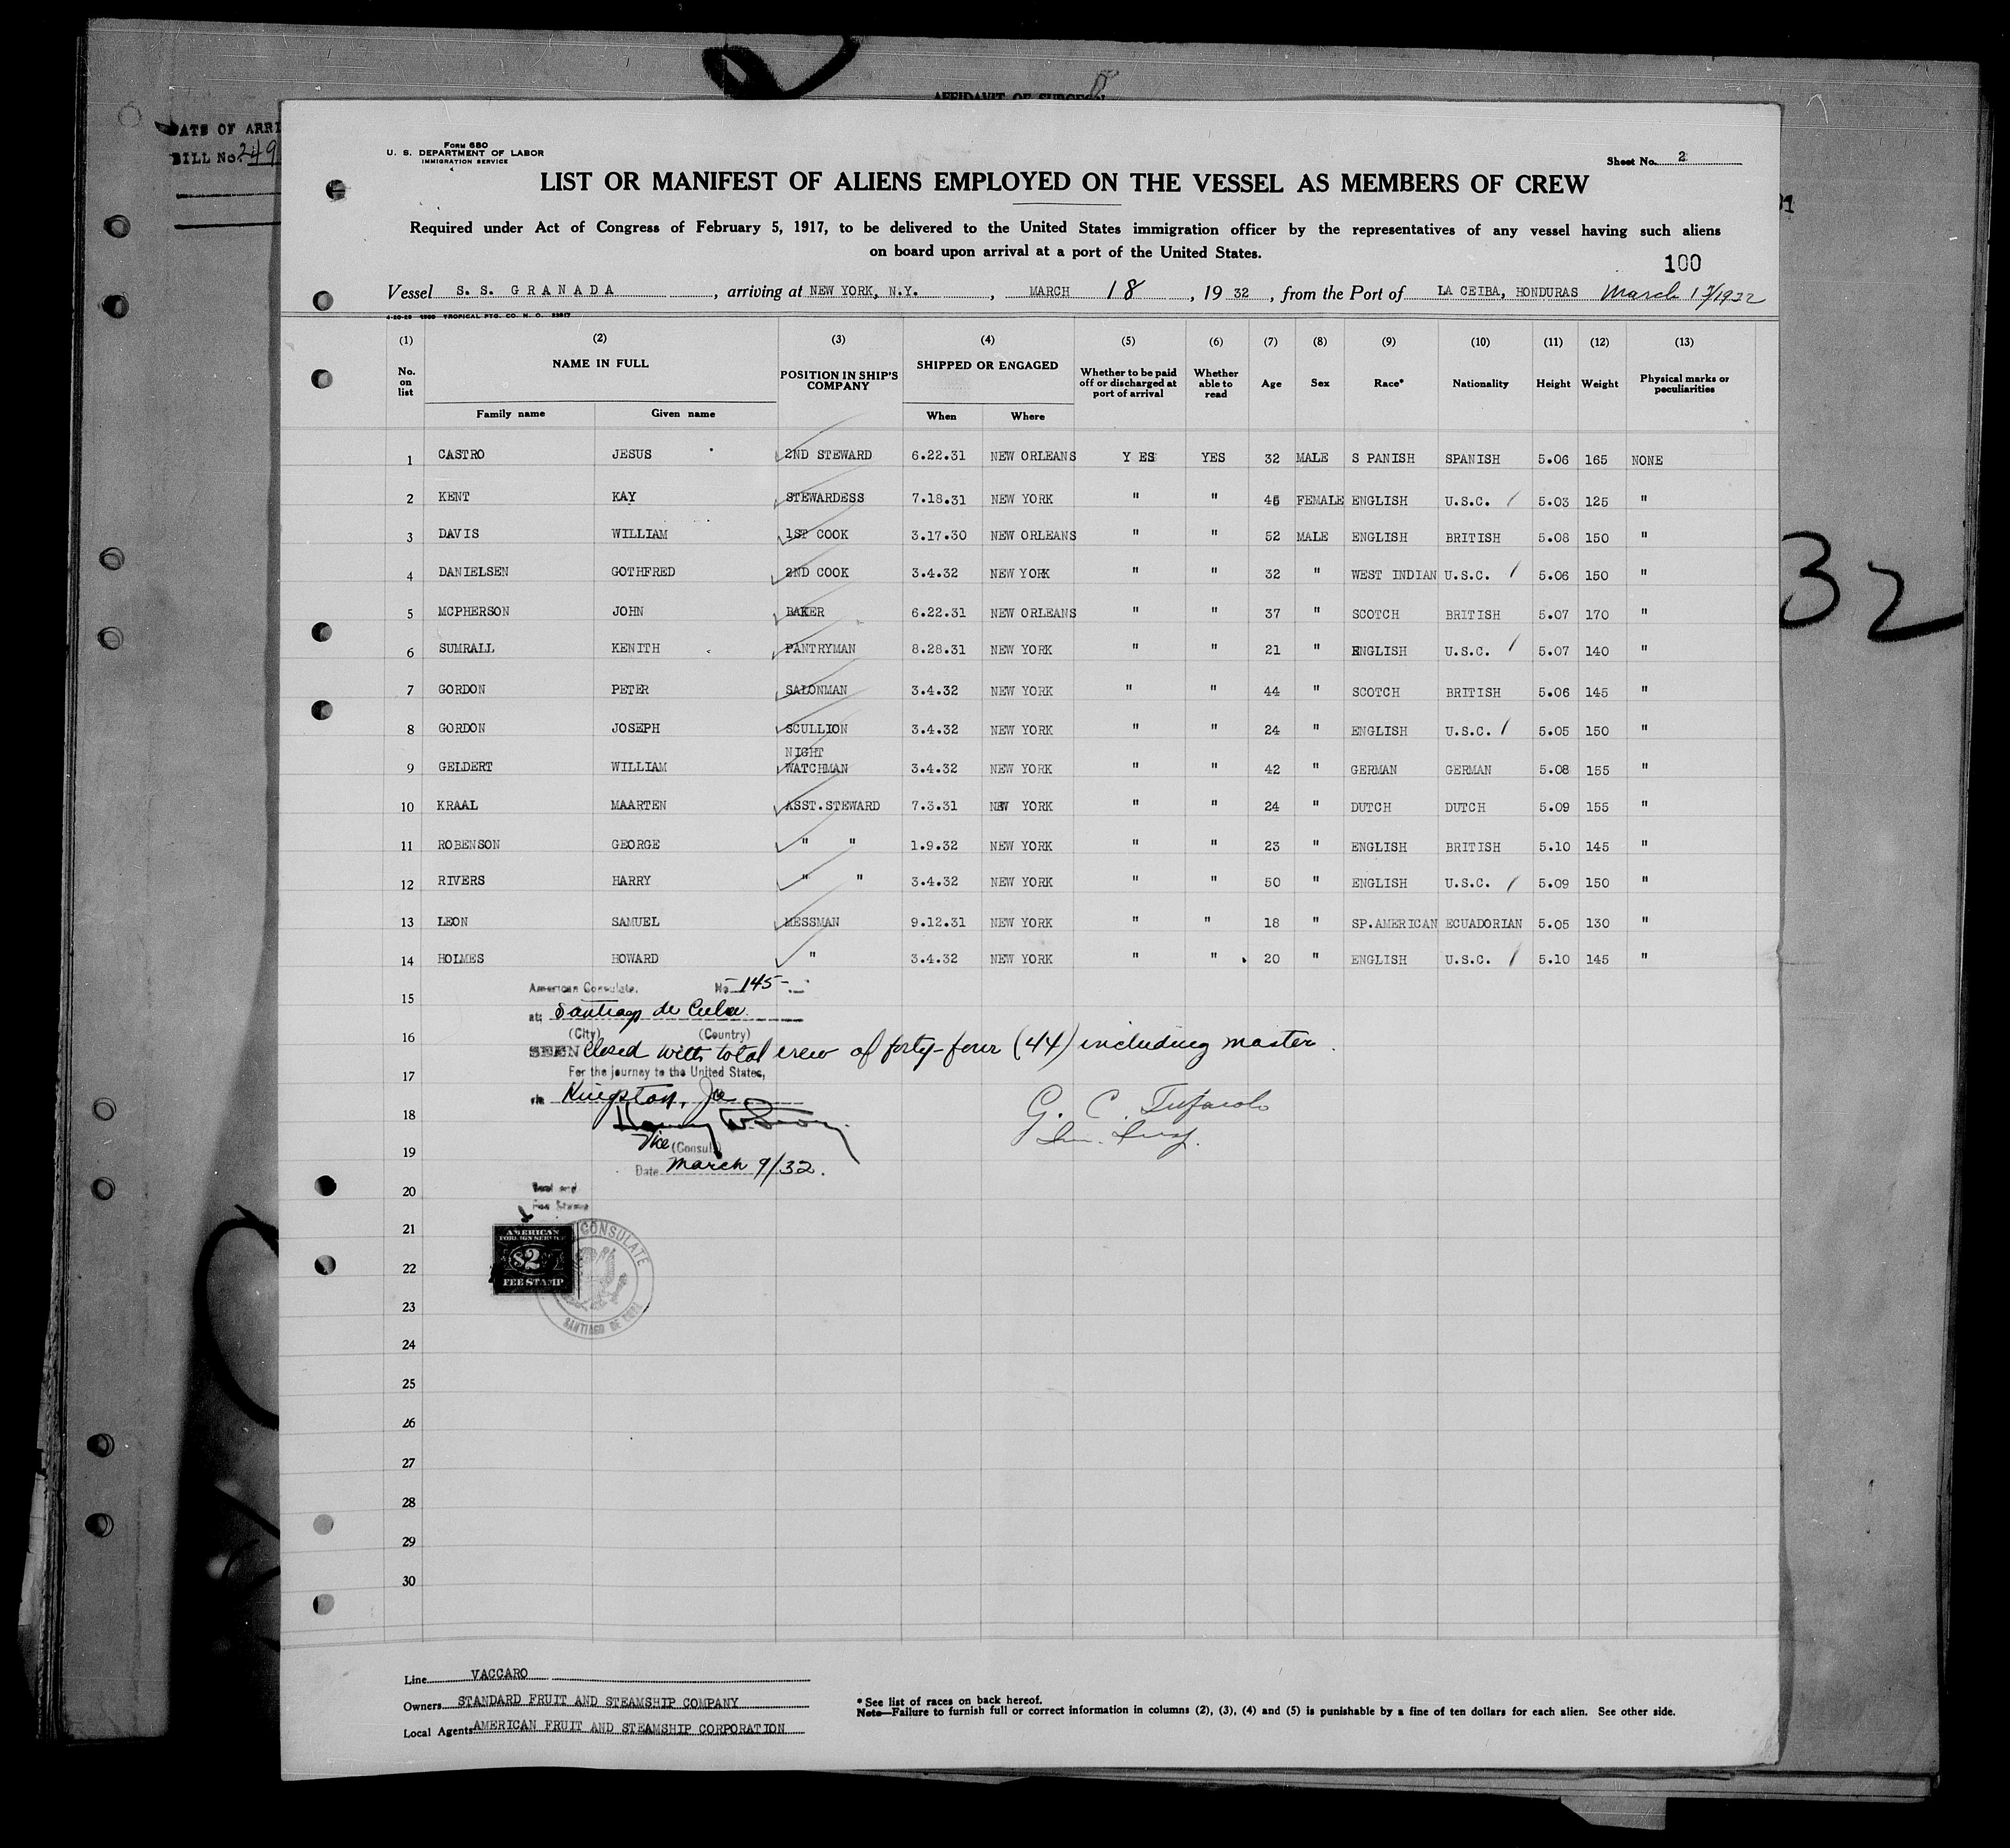 AFFIDAVIT OF SURGEON
DATE OF ARRI
BILL No. 249
32
Form 680
U. S. DEPARTMENT OF LABOR
IMMIGRATION SERVICE
Sheet No. 2
LIST OR MANIFEST OF ALIENS EMPLOYED ON THE VESSEL AS MEMBERS OF CREW
Required under Act of Congress of February 5, 1917, to be delivered to the United States immigration officer by the representatives of any vessel having such aliens
on board upon arrival at a port of the United States.
100
Vessel S. S. GRANADA, arriving at NEW YORK, N.Y., MARCH 18, 1932, from the Port of LA CEIBA, HONDURAS March 13/1932
4-20-29 1000 TROPICAL PTG. CO. N. O.
(1) (2) (3) (4) (5) (6) (7) (8) (9) (10) (11) (12) (13)
No. on list NAME IN FULL POSITION IN SHIP'S COMPANY SHIPPED OR ENGAGED Whether to be paid off or discharged at port of arrival Whether able to read Age Sex Race* Nationality Height Weight Physical marks or peculiarities
Family name Given name When Where
1 CASTRO JESUS 2ND STEWARD 6.22.31 NEW ORLEANS Y ES YES 32 MALE S PANISH SPANISH 5.06 165 NONE
2 KENT KAY STEWARDESS 7.18.31 NEW YORK " " 45 FEMALE ENGLISH U.S.C. 5.03 125 "
3 DAVIS WILLIAM 1ST COOK 3.17.30 NEW ORLEANS " " 52 MALE ENGLISH BRITISH 5.08 150 "
4 DANIELSEN GOTHFRED 2ND COOK 3.4.32 NEW YORK " " 32 " WEST INDIAN U.S.C. 5.06 150 "
5 MCPHERSON JOHN BAKER 6.22.31 NEW ORLEANS " " 37 " SCOTCH BRITISH 5.07 170 "
6 SUMRALL KENITH PANTRYMAN 8.28.31 NEW YORK " " 21 " ENGLISH U.S.C. 5.07 140 "
7 GORDON PETER SALONMAN 3.4.32 NEW YORK " " 44 " SCOTCH BRITISH 5.06 145 "
8 GORDON JOSEPH SCULLION 3.4.32 NEW YORK " " 24 " ENGLISH U.S.C. 5.05 150 "
NIGHT
9 GELDERT WILLIAM WATCHMAN 3.4.32 NEW YORK " " 42 " GERMAN GERMAN 5.08 155 "
10 KRAAL MAARTEN ASST.STEWARD 7.3.31 NEW YORK " " 24 " DUTCH DUTCH 5.09 155 "
11 ROBENSON GEORGE " " 1.9.32 NEW YORK " " 23 " ENGLISH BRITISH 5.10 145 "
12 RIVERS HARRY " " 3.4.32 NEW YORK " " 50 " ENGLISH U.S.C. 5.09 150 "
13 LEON SAMUEL MESSMAN 9.12.31 NEW YORK " " 18 " SP.AMERICAN ECUADORIAN 5.05 130 "
14 HOLMES HOWARD " 3.4.32 NEW YORK " " 20 " ENGLISH U.S.C. 5.10 145 "
American Consulate. No 145-
15
at: Santiago de Cuba
(City) (Country)
16
SEEN Closed with total crew of forty-four (44) including master.
For the journey to the United States,
17
via Kingston, Ja
18
Vice (Consul)
19
Date March 9/32.
20
Seal and
Fee Stamp
21
AMERICAN
FOREIGN SERVICE
$2
FEE STAMP
CONSULATE
SANTIAGO DE CUBA
22
23
24
25
26
27
28
29
30
Line VACCARO
Owners STANDARD FRUIT AND STEAMSHIP COMPANY
Local Agents AMERICAN FRUIT AND STEAMSHIP CORPORATION
* See list of races on back hereof.
Note—Failure to furnish full or correct information in columns (2), (3), (4) and (5) is punishable by a fine of ten dollars for each alien. See other side.